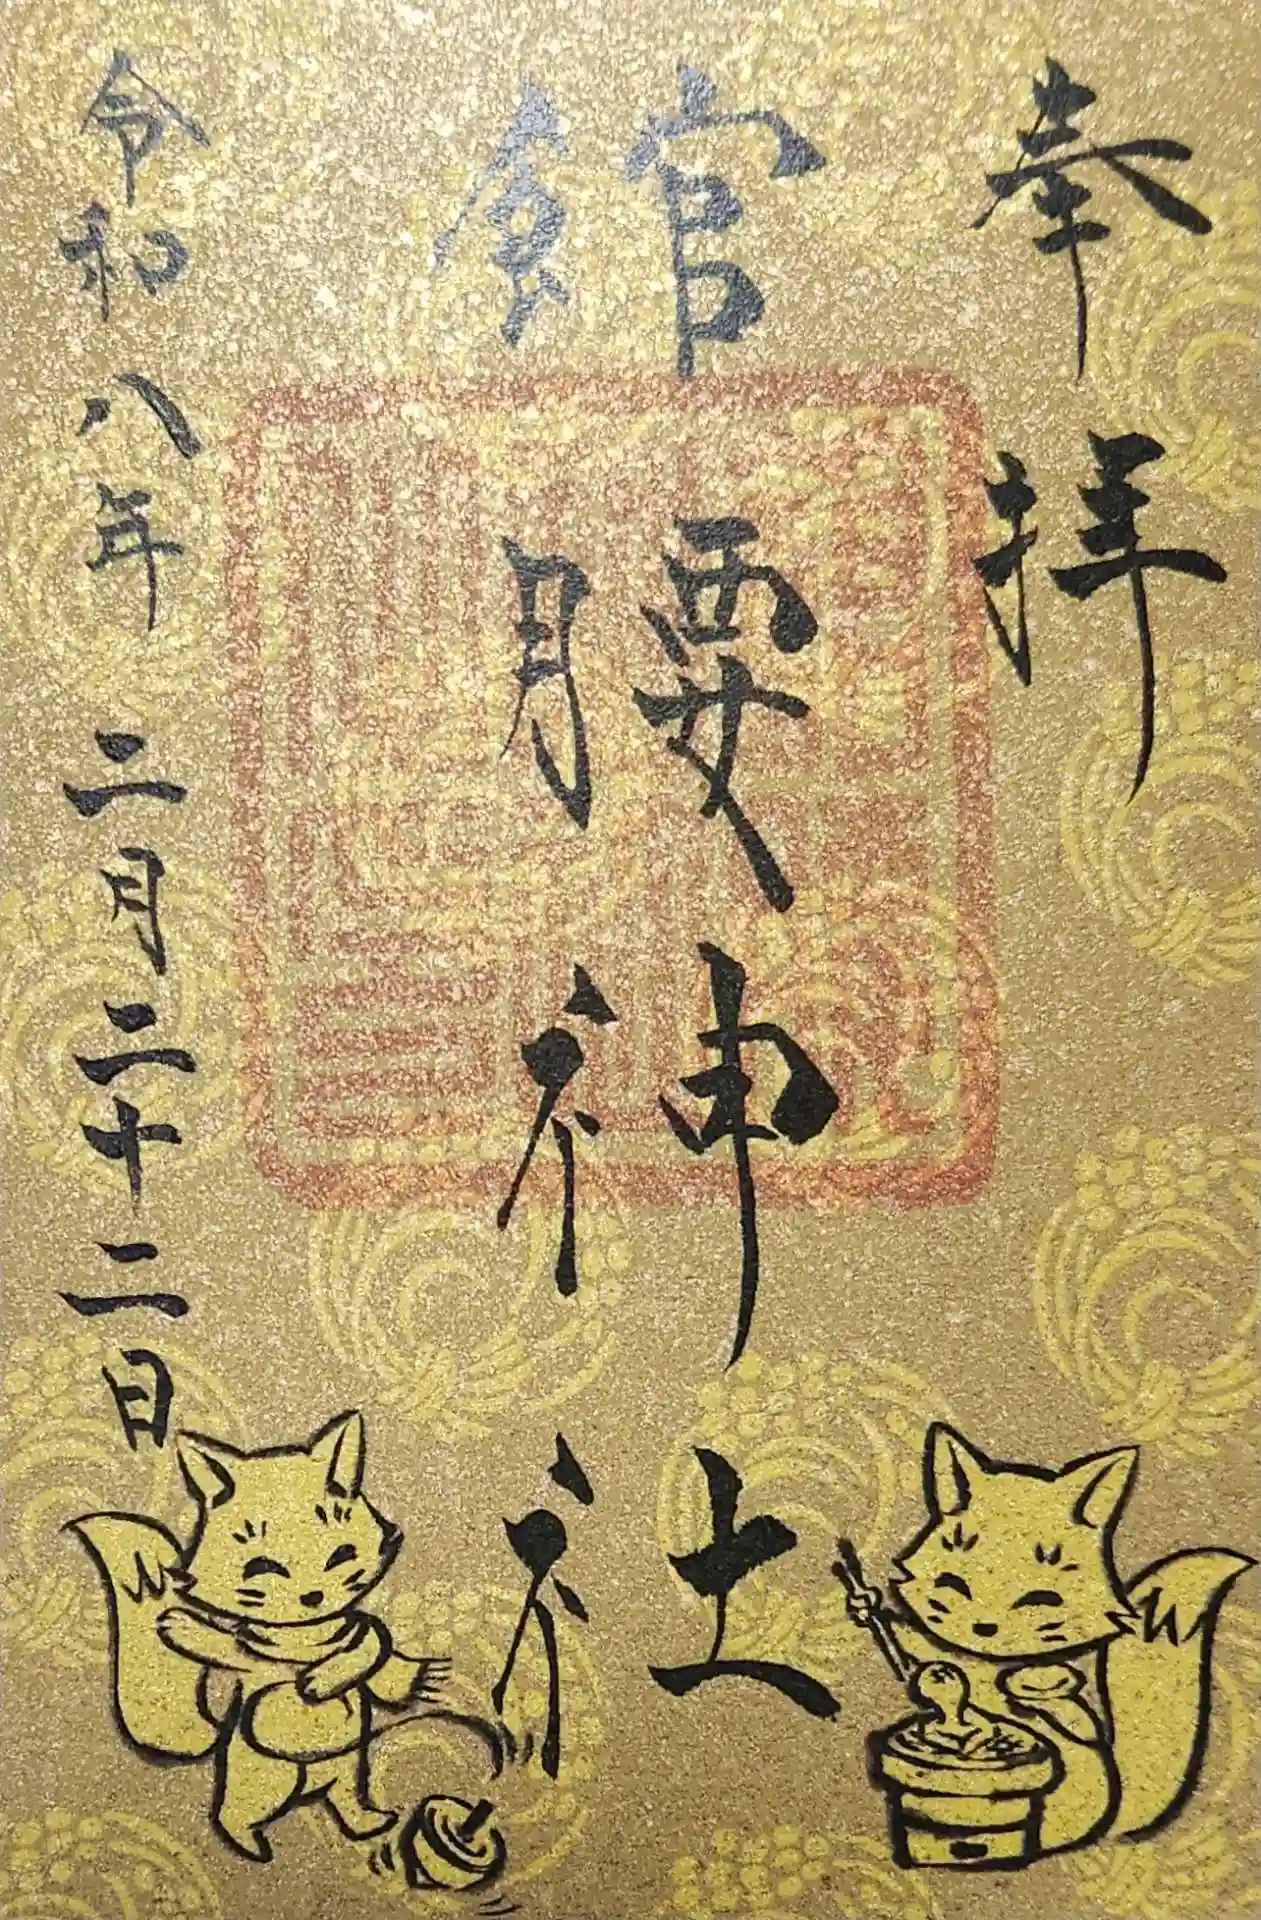 奉拝
館腰神社
令和八年二月二十二日